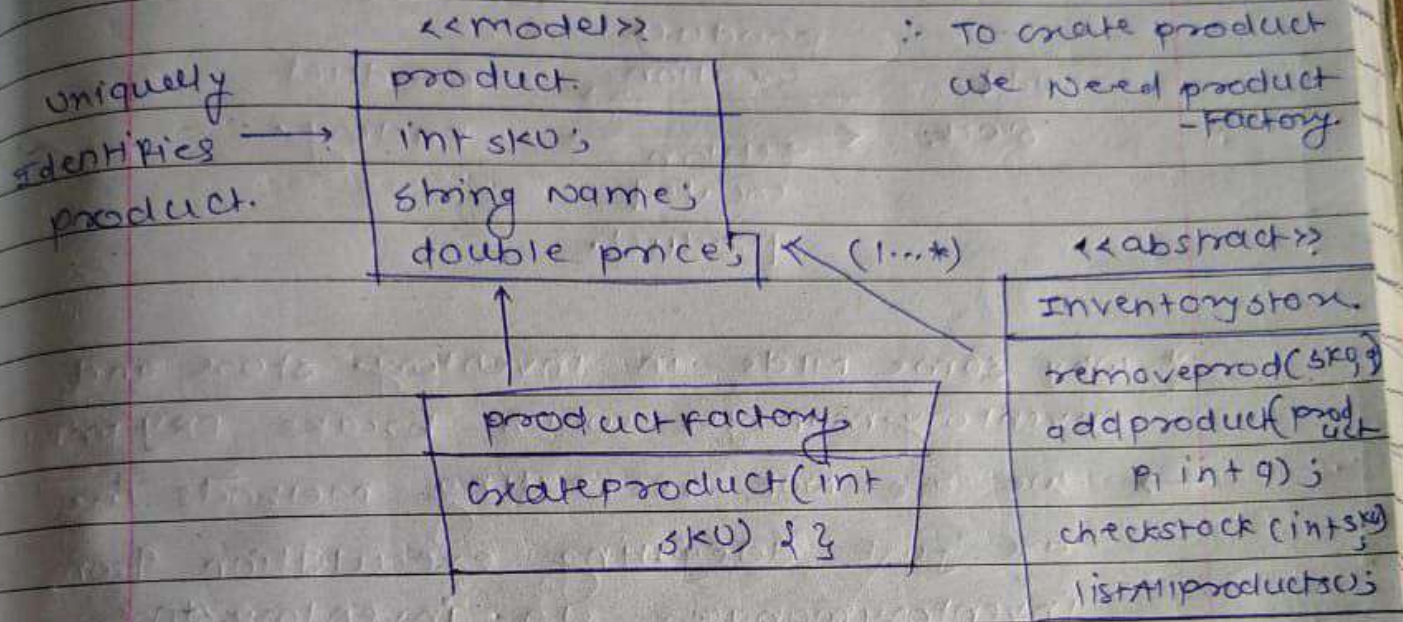 <<model>>
∴ To create product
we Need product
-Factory.
uniquely
Identifies →
product.
product.
int sku;
string Name;
double price;
(1...*)
<<abstract>>
Inventorystore.
removeprod(sku, q)
addproduct(product
P, int q);
checkstock (int sku);
listAllproducts();
productFactory
createproduct(int
sku) { }